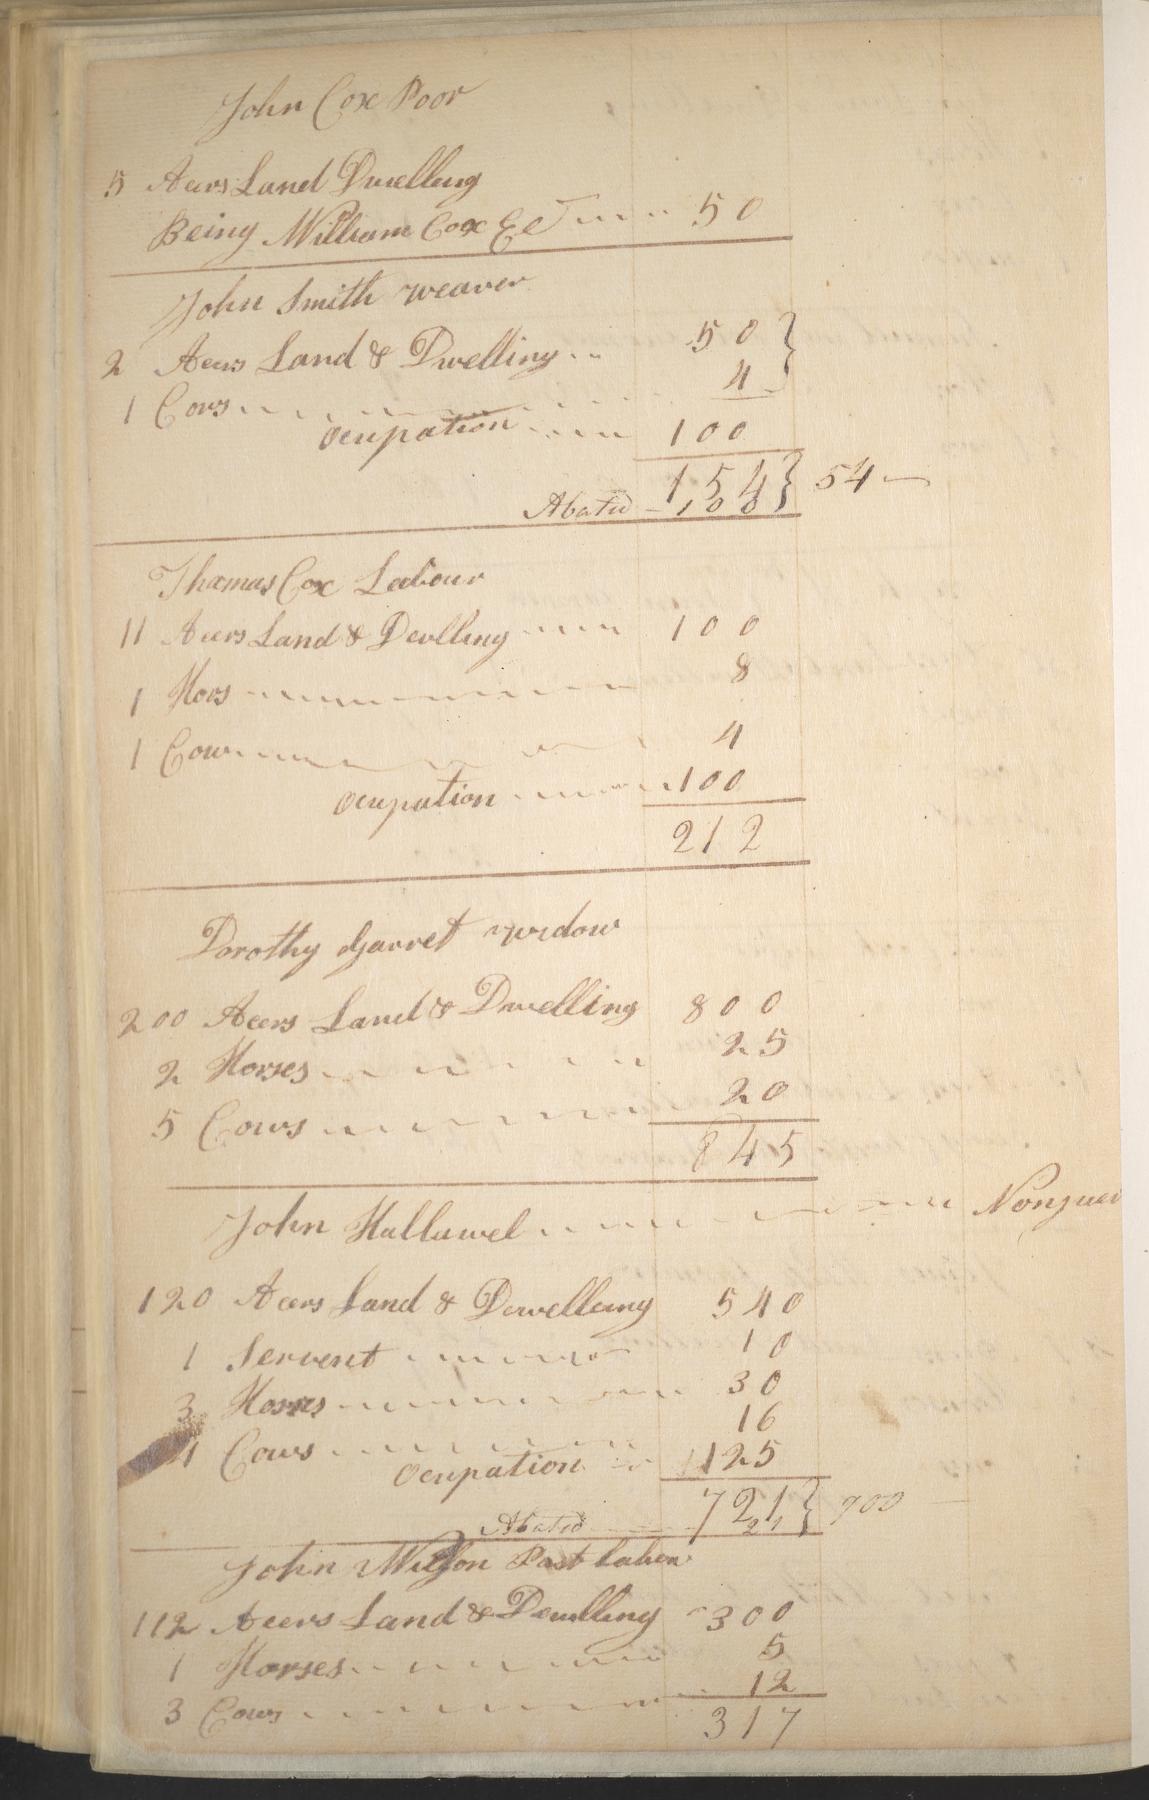 John Cox Poor
5 Acers Land Dwelling
Being William Cox Es 50
John Smith weaver
2 Acers Land & Dwelling 50
1 Cows 4
Ocupation 100
154 } 54
Abated 100
Thamas Cox Labour
11 Acers Land & Dwlling 100
1 Hors 8
1 Cow 4
Ocupation 100
212
Dorothy Garret widow
200 Acers Land & Dwelling 800
2 Horses 25
5 Cows 20
845
John Hallawel
120 Acers Land & Dwelleing 540
1 Servent 10
3 Horses 30
4 Cows 16
Ocupation 125
721 } 700
Abated 21
John Wilson Past labor
112 Acers Land & Dwelling 300
1 Horses 5
3 Cows 12
317